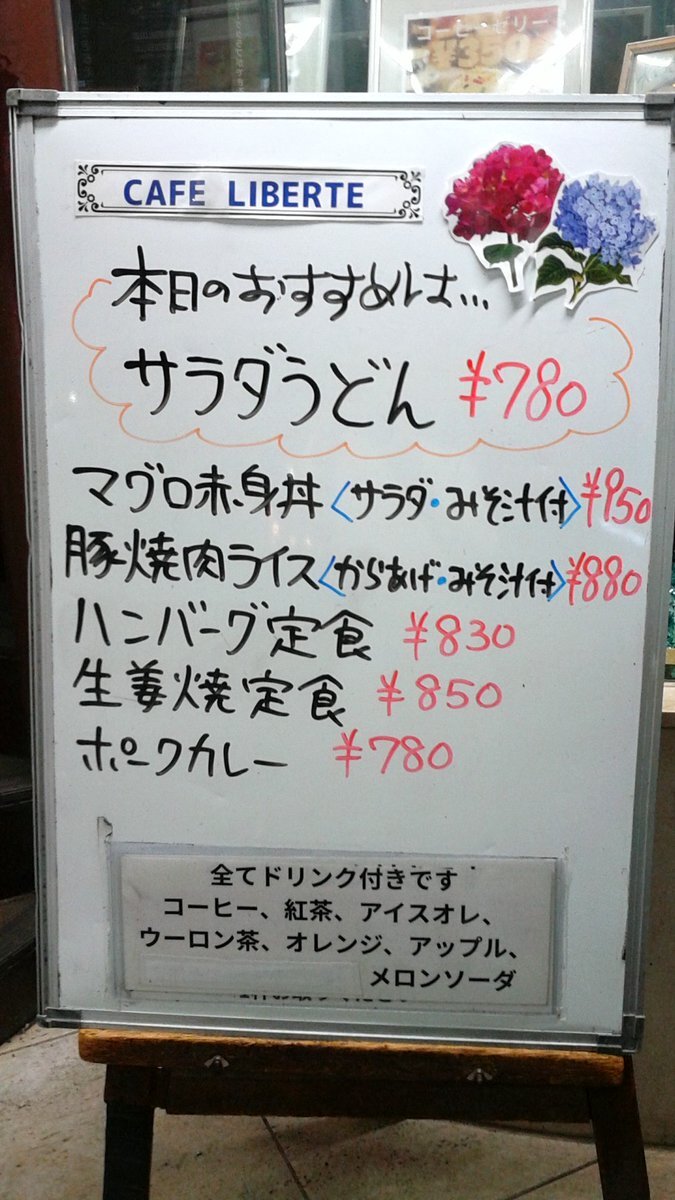 コーヒーゼリー
¥350
CAFE LIBERTE
本日のおすすめは...
サラダうどん ¥780
マグロ赤身丼〈サラダ・みそ汁付〉¥950
豚焼肉ライス〈からあげ・みそ汁付〉¥880
ハンバーグ定食 ¥830
生姜焼定食 ¥850
ポークカレー ¥780
全てドリンク付きです
コーヒー、紅茶、アイスオレ、
ウーロン茶、オレンジ、アップル、
メロンソーダ